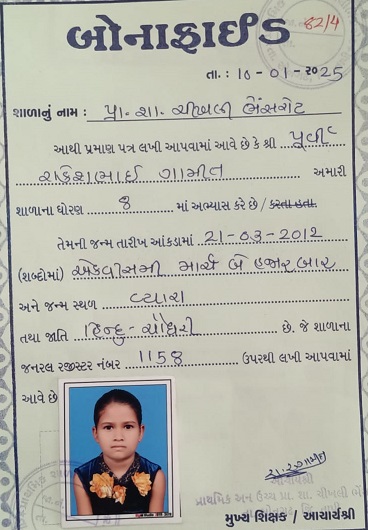 બોનાફાઈડ
82/4
તા. : 10-01-2025
શાળાનું નામ : પ્રા. શા. ચીખલી ભેંસરોટ
આથી પ્રમાણ પત્ર લખી આપવામાં આવે છે કે શ્રી પૂર્વી
રાકેશભાઈ ગામીત અમારી
શાળાના ધોરણ 8 માં અભ્યાસ કરે છે / કરતા હતા.
તેમની જન્મ તારીખ આંકડામાં 21-03-2012
(શબ્દોમાં) એકવીસમી માર્ચ બે હજાર બાર
અને જન્મ સ્થળ વ્યારા
તથા જાતિ હિન્દુ-ચૌધરી છે. જે શાળાના
જનરલ રજીસ્ટર નંબર 1158 ઉપરથી લખી આપવામાં
આવે છે
આચાર્યશ્રી
પ્રાથમિક અને ઉચ્ચ પ્રા. શા. ચીખલી
મુખ્ય શિક્ષક / આચાર્યશ્રી